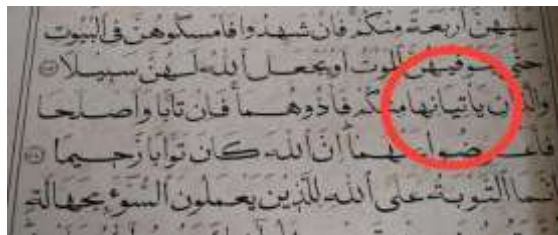 عليهن أربعة منكم فان شهدوا فامسكوهن في البيوت
حتى يتوفيهن الموت او يجعل الله لهن سبيلا ۝
والذن يأتيانها منكم فأذوهما فان تابا وأصلحا
فاعرضوا عنهما إن الله كان توابا رحيما ۝
إنما التوبة على الله للذين يعملون السوء بجهالة